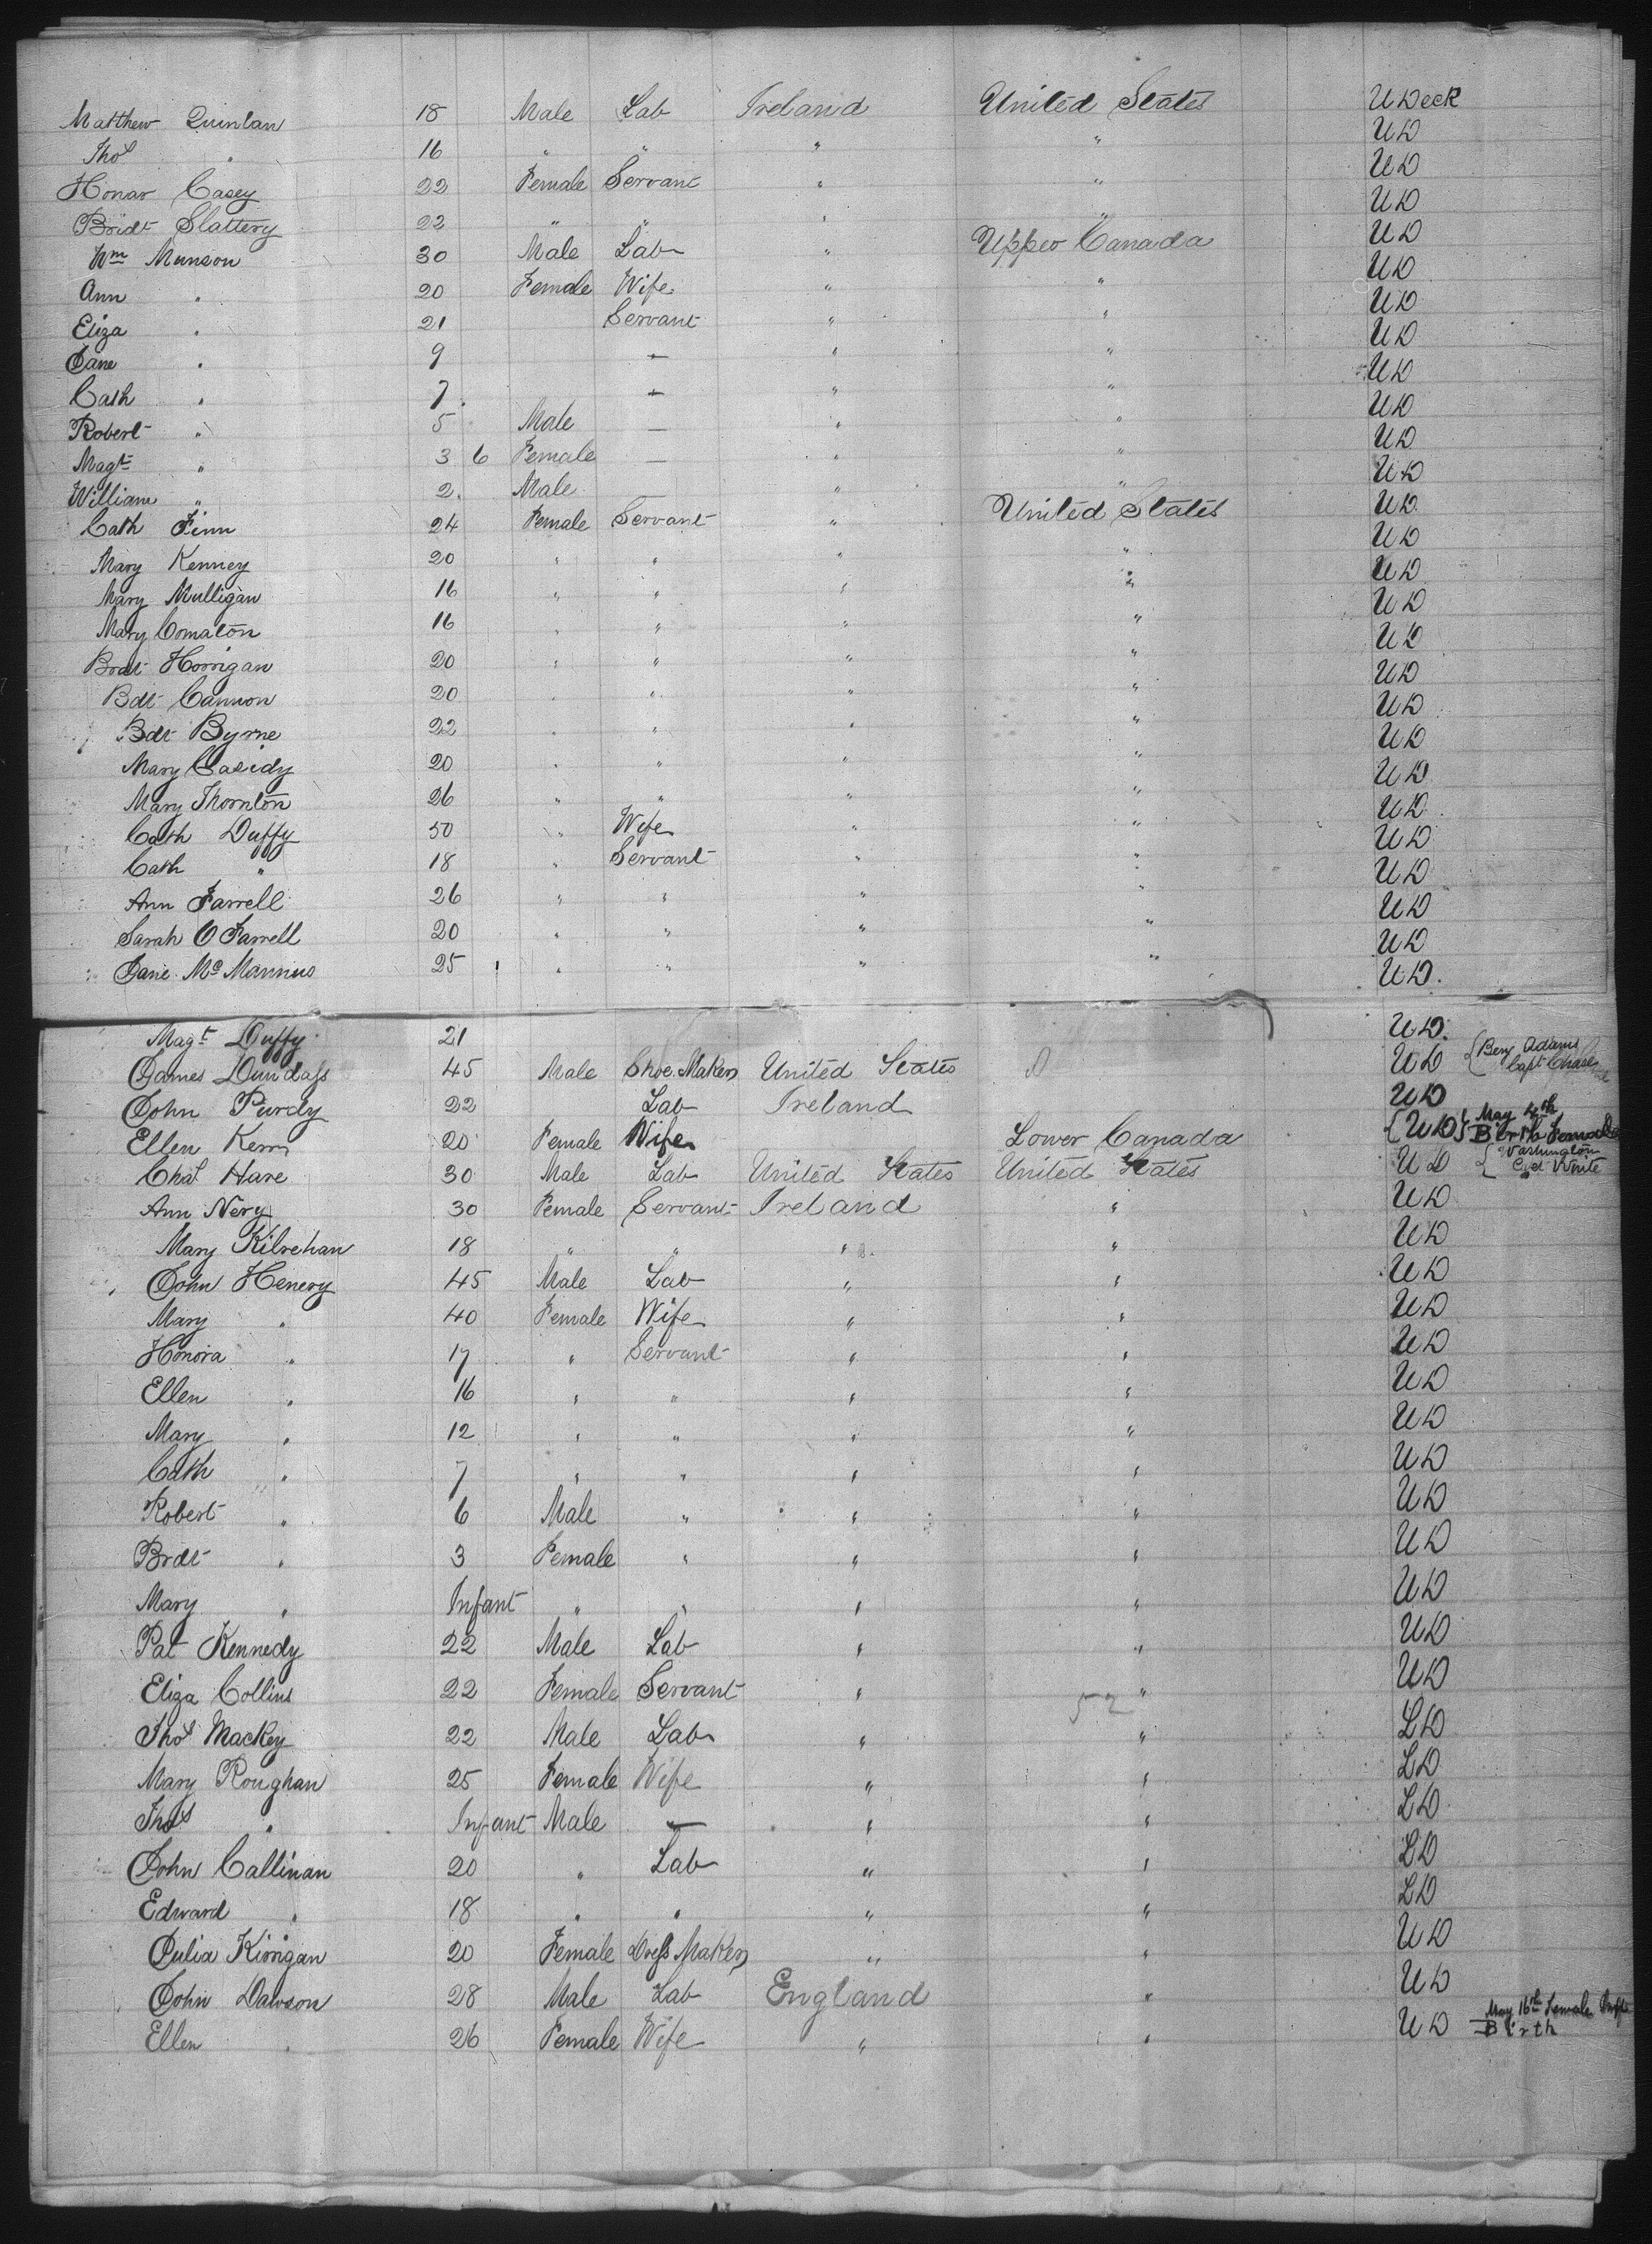 Matthew Quinlan 18 Male Lab Ireland United States U Deck
Thos " 16 " " " " UD
Honar Casey 22 Female Servant " " UD
Bridt Slattery 22 " " " " UD
Wm Munson 30 Male Lab " Upper Canada UD
Ann " 20 Female Wife " " UD
Eliza " 21 Servant " " UD
Jane " 9 — " " UD
Cath " 7 — " " UD
Robert " 5 Male — " " UD
Magt " 3 6 Female — " " UD
William " 2 Male — " " UD
Cath Finn 24 Female Servant " United States UD
Mary Kenney 20 " " " " UD
Mary Mulligan 16 " " " " UD
Mary Comaton 16 " " " " UD
Brdt Horrigan 20 " " " " UD
Bdt Cannon 20 " " " " UD
Bdt Byrne 22 " " " " UD
Mary Casidy 20 " " " " UD
Mary Thornton 26 " " " " UD
Cath Duffy 50 " Wife " " UD
Cath " 18 " Servant " " UD
Ann Farrell 26 " " " " UD
Sarah O Farrell 20 " " " " UD
Jane Mc Mannus 25 " " " " UD.
Magt Duffy 21 UD.
James Dundass 45 Male Shoe Maker United States UD { Benj Adams Capt Chase
John Purdy 22 Lab Ireland UD
Ellen Kerr 20 Female Wife Lower Canada { UD } May 4th Birth Female
Chas Hare 30 Male Lab United States United States UD { Washington Capt White
Ann Nery 30 Female Servant Ireland " UD
Mary Kilrehan 18 " " " " UD
John Henery 45 Male Lab " " UD
Mary " 40 Female Wife " " UD
Honora " 17 " Servant " " UD
Ellen " 16 " " " " UD
Mary " 12 " " " " UD
Cath " 7 " " " " UD
Robert " 6 Male " " " UD
Brdt " 3 Female " " " UD
Mary " Infant " " " " UD
Pat Kennedy 22 Male Lab " " UD
Eliza Collins 22 Female Servant " " UD
52
Thos Mackey 22 Male Lab " " LD
Mary Roughan 25 Female Wife " " LD
Thos " Infant Male — " " LD
John Callinan 20 " Lab " " LD
Edward " 18 " " " " LD
Julia Kirrigan 20 Female Dress Maker " " UD
John Dawson 28 Male Lab England " UD
Ellen " 26 Female Wife " " UD May 16th Female Birth